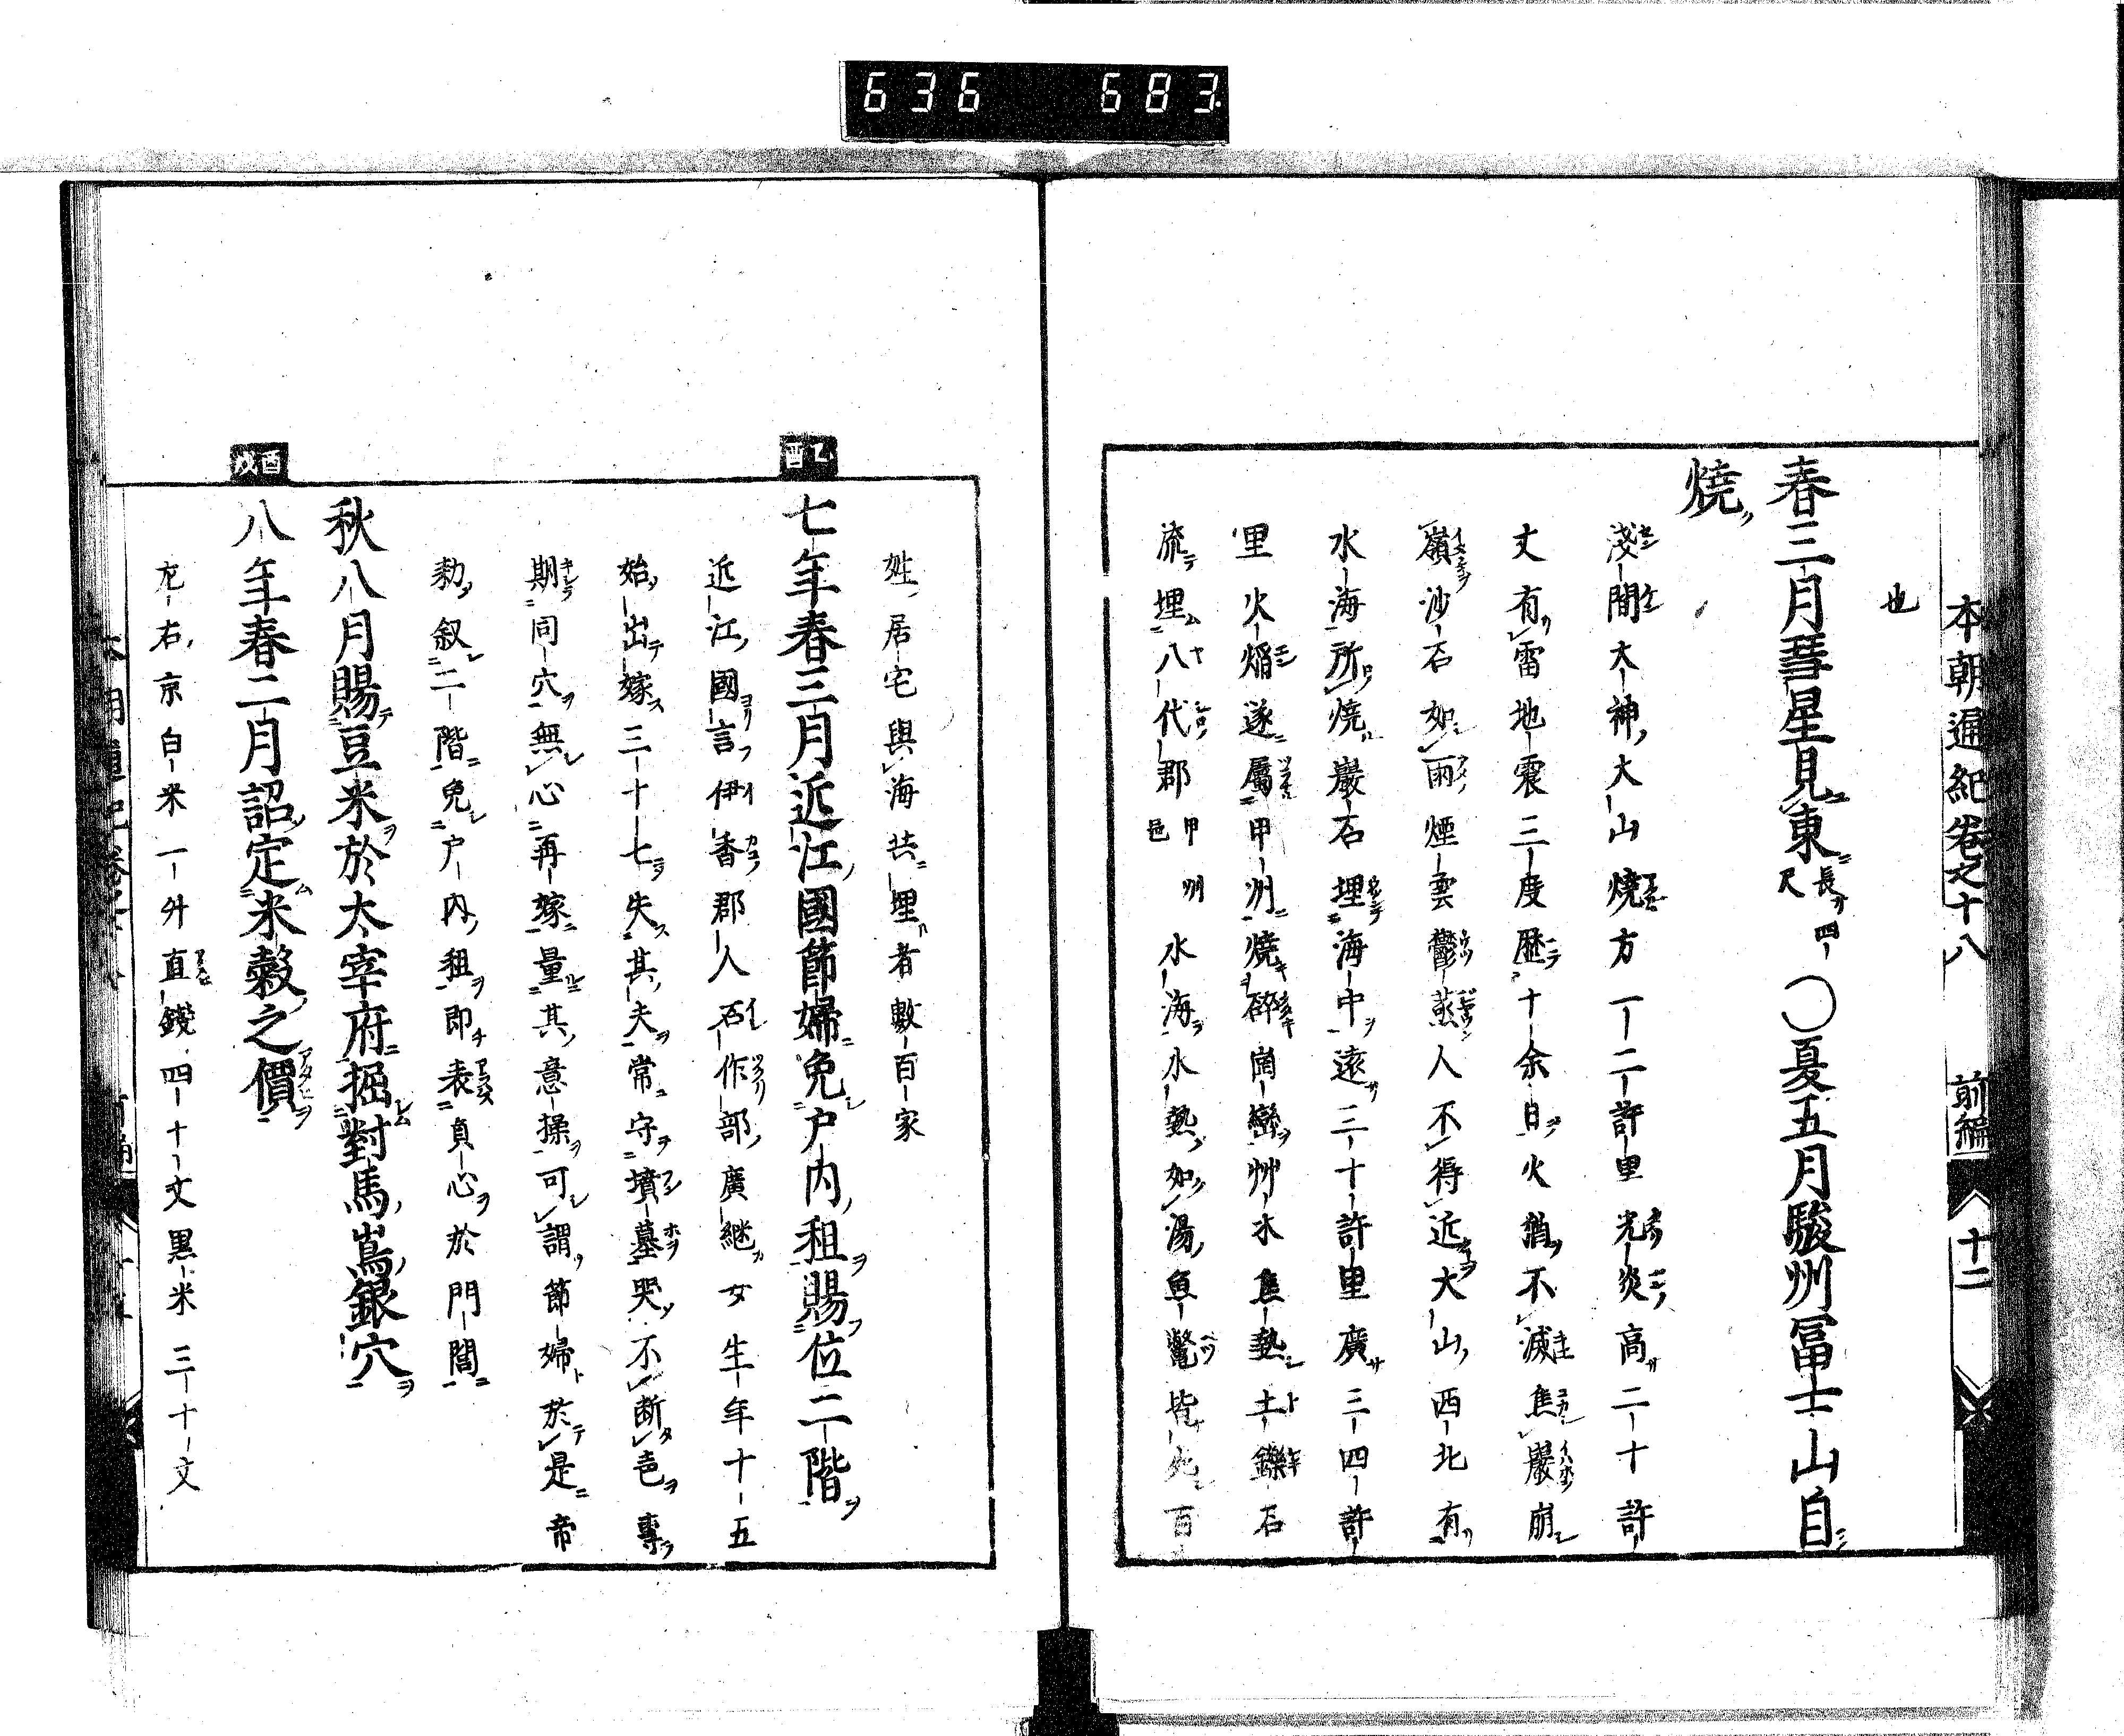 636 683
本朝通紀卷之十八 前編 十二
也
春三月彗星見東長四尺○夏五月駿州冨士山自
焼
淺間大神大山焼方一二許里光炎高二十許
丈有雷地震三度歴十余日火猶不滅焦巖崩
嶺沙石如雨煙雲鬱蒸人不得近大山西北有
水海所焼巖石埋海中遠三十許里廣三四許
里火焔遂属甲州焼碎崗巒艸木焦熱土鑠石
流埋八代郡甲州邑水海水熱如湯魚鼈皆死百
姓居宅與海共埋者數百家
乙酉
七年春三月近江國節婦免戸内租賜位二階
近江國言伊香郡人石作部廣継女生年十五
始出嫁三十七失其夫常守墳墓哭不断㐌專
期同穴無心再嫁量其意操可謂節婦於是帝
勅叙二階免戸内租即表貞心於門閭
秋八月賜豆米於太宰府掘對馬嶌銀穴
酉戌
八年春二月詔定米穀之價
㔫右京白米一舛直錢四十文黒米三十文